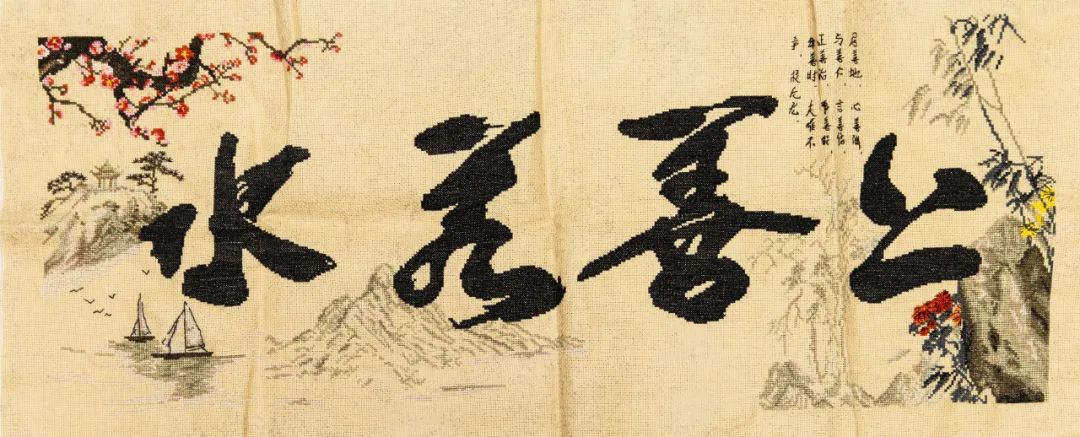 上善若水
居善地,心善渊,
与善仁,言善信,
正善治,事善能
动善时,夫唯不
争,故无尤。